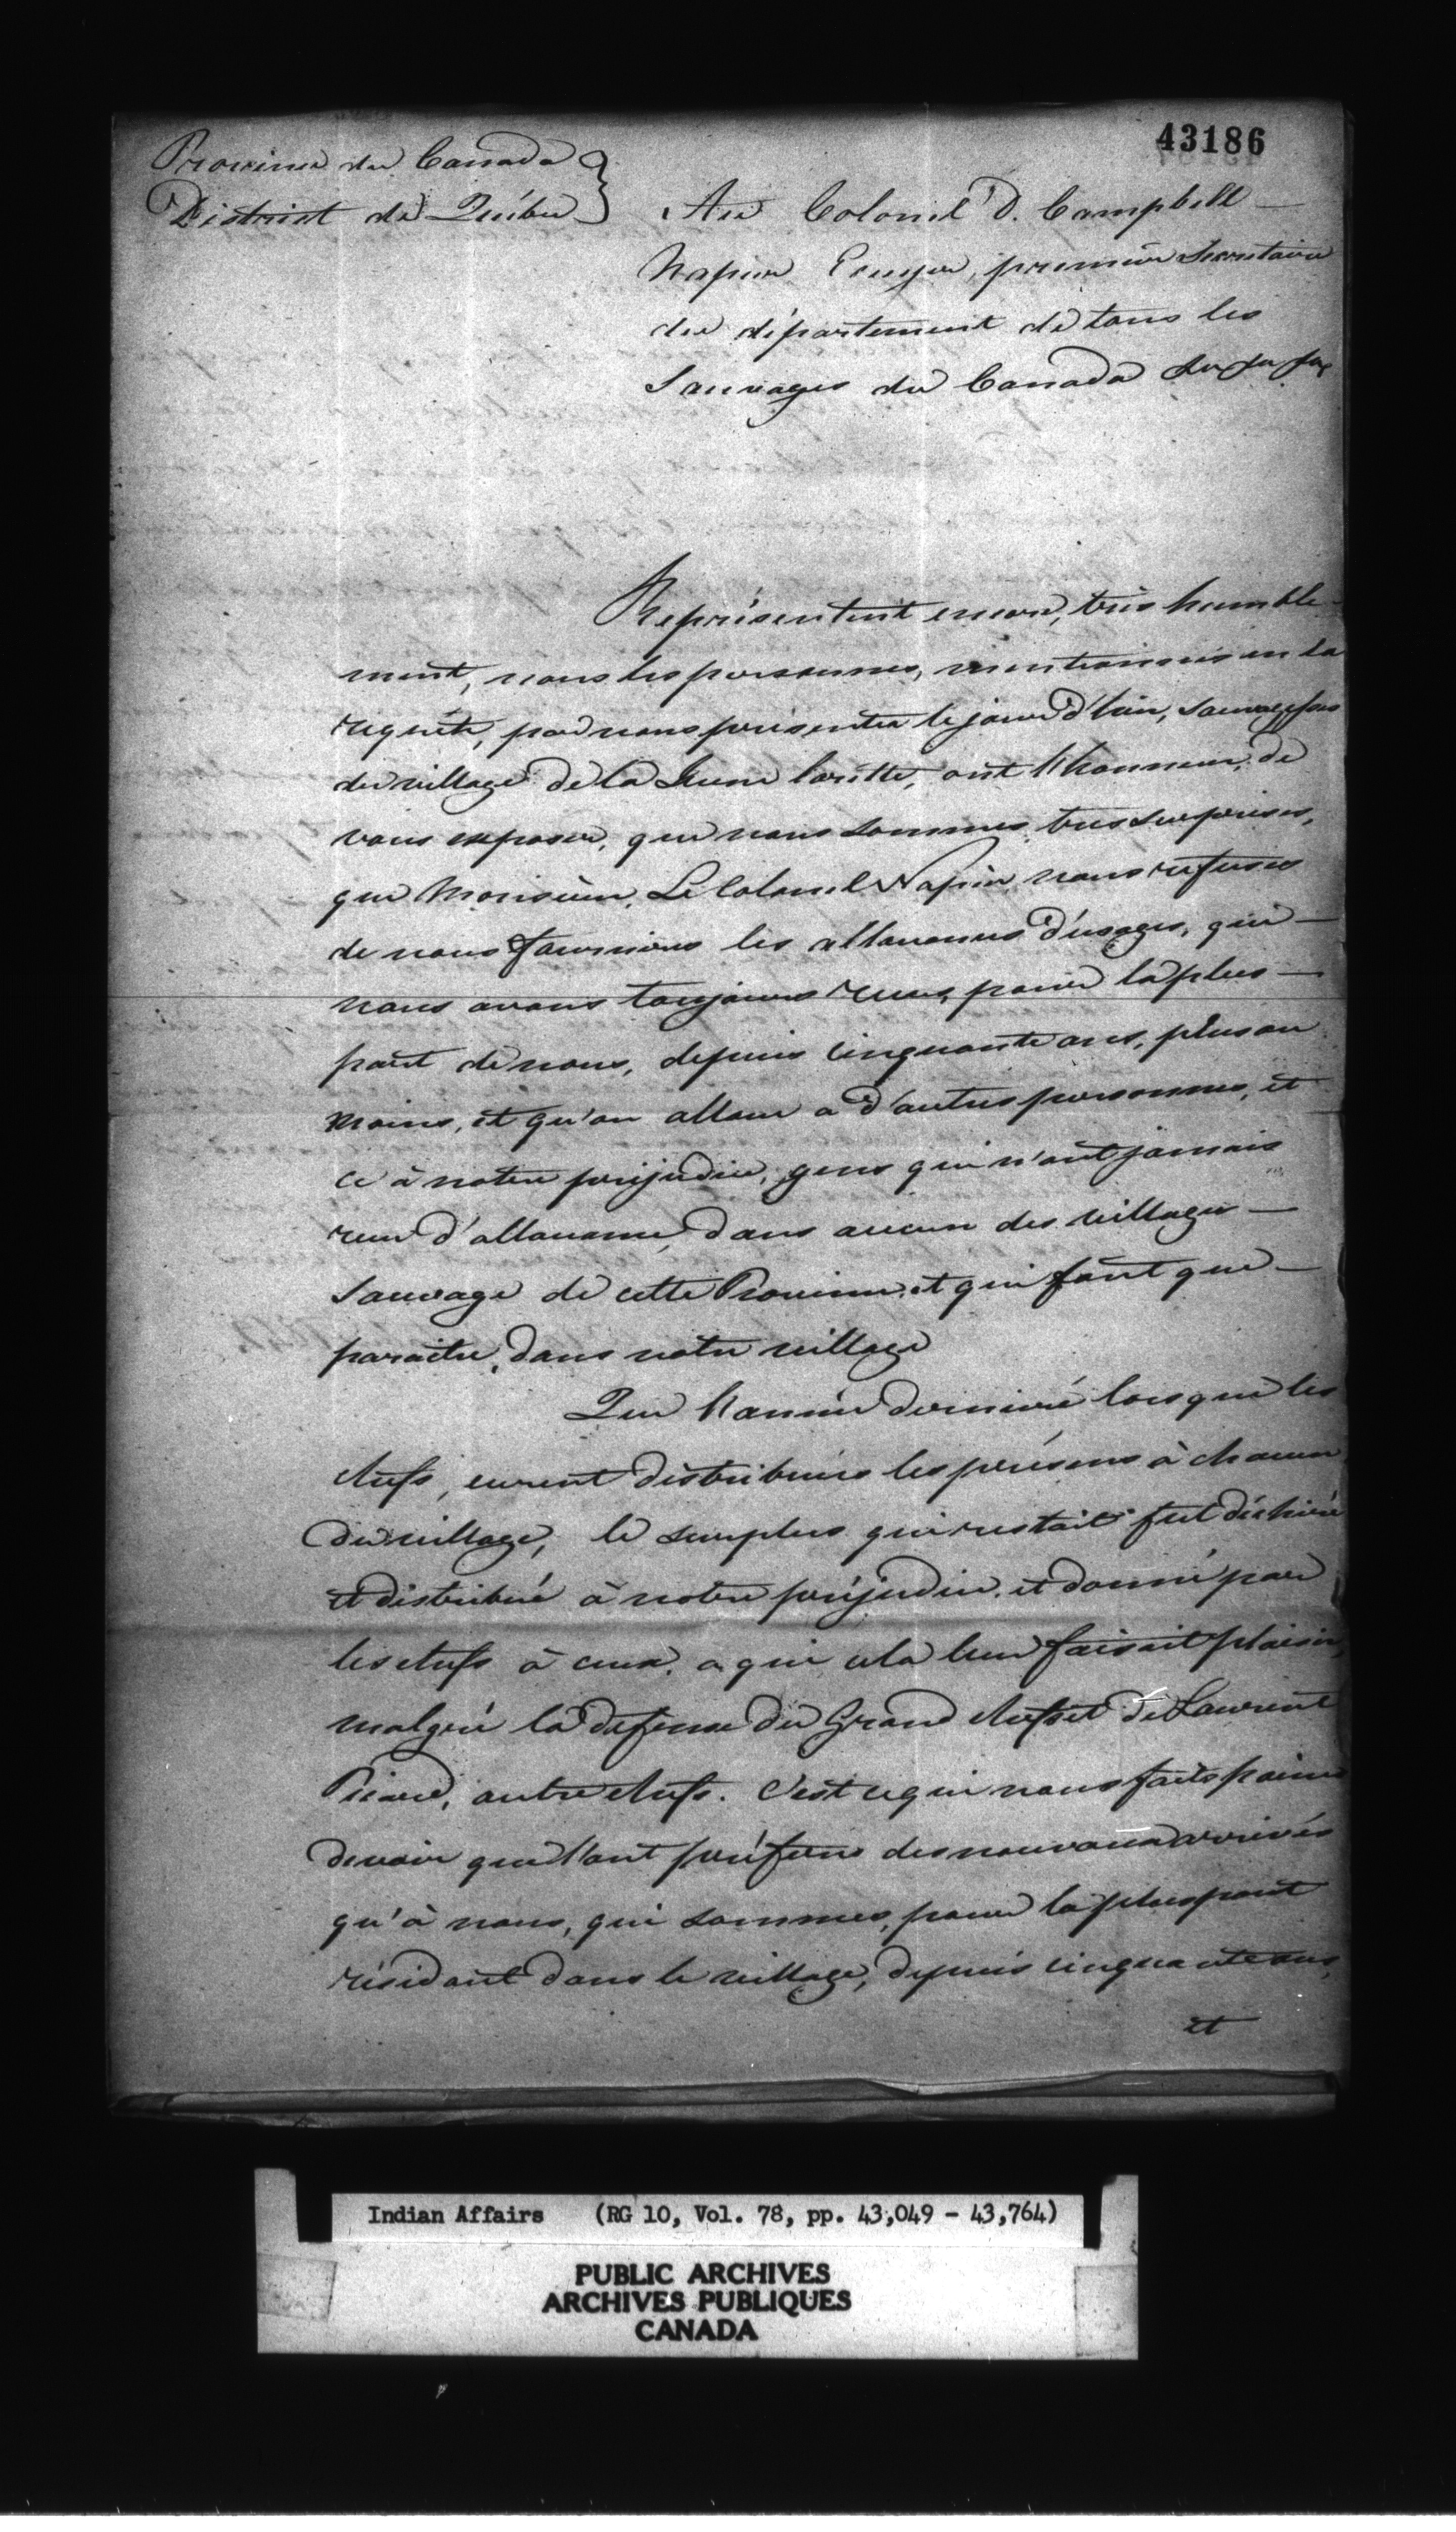 43186
Province du Canada
District de Québec }
Au Colonel D. Campbell —
Napier Ecuyer, premier Secretaire
du département de tous les
Sauvages du Canada
Représentent encore, très humble-
ment, nous les personnes, mentionnés en la
requête, par nous présentée le jour d'hier, sauvagesses
du village de la Jeune lorette, ont l'honneur, de
vous exposer, que nous sommes très surprises,
que Monsieur, Le Colonel Napier nous refuses
de nous fournires les allouances d'usages, que —
nous avons toujours reçues, pour la plus —
part de nous, depuis cinquante ans, plus ou
moins, et qu'on alloue a d'autres personnes, et
ce à notre préjudice, gens qui n'ont jamais
reçue d'allouance, dans aucun des villages —
Sauvage de cette Province, et qui font que —
paraitre, dans notre village
Que l'année dernière lorsque les
chefs, eurent distribués les présens à chacun
du village, le surplus qui restait fut déchiré
et distribué à notre préjudice, et donné par
les chefs à ceux, a qui cela leur faisait plaisir,
malgré la defense du Grand chefs et de Laurent
Picard, autre chefs. C'est ce qui nous faits peine
de voir que l'ont préfere des nouveaux arrivés
qu'à nous, qui sommes, pour la plus part
résidant dans le village, depuis cinquante ans,
et
Indian Affairs (RG 10, Vol. 78, pp. 43,049 - 43,764)
PUBLIC ARCHIVES
ARCHIVES PUBLIQUES
CANADA